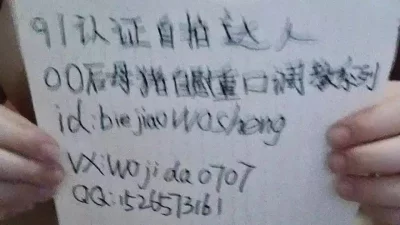 91认证自拍达人
00后母猪自慰重口调教系列
id:biejiaowosheng
VX:wojida0707
QQ:1526573161